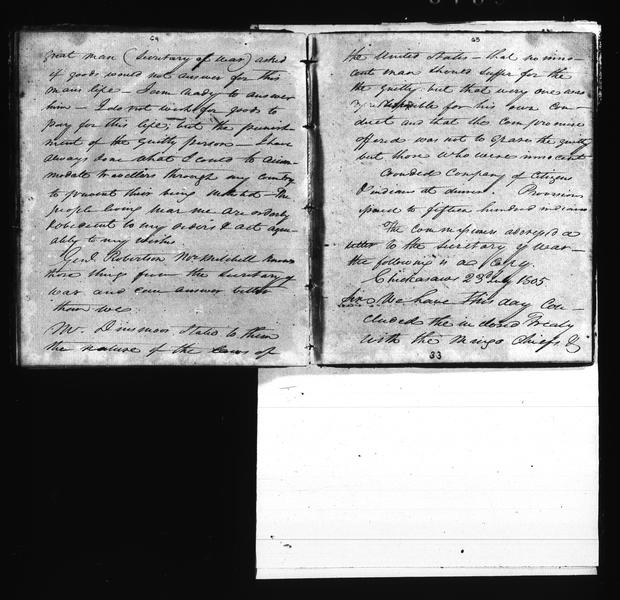 64
great man (Secretary of War) asked
if goods would not answer for this
mans life – I am ready to answer
him – I do not wish for goods to
pay for this life, but the punish
ment of the guilty person – I have
always done what I could to accom
modate travellers through my country
to prevent their being molested. The
people living near me are orderly
& obedient to my orders & act agree
ably to my wishes.
Genl Robertson Mr Mitchell knows
those things from the Secretary of
war and can answer better
than we
Mr. Dinsmoor States to them
the nature of the Laws of
65
the United States – that no inno
cent man should suffer for the
the guilty but that every one was
responsible for his own con
duct and that the compromise
offered was not to spare the guilty
but those who were innocent
Crowded Company of Citizens
& indians at dinner. Provisions
issued to fifteen hundred indians
The Commissioners addressed a
letter to the Secretary of War –
the following is a Copy.
Chickasaws 23d July 1805
Sir, We have this day Con
cluded the inclosed Treaty
with the Mingo Chiefs &
33